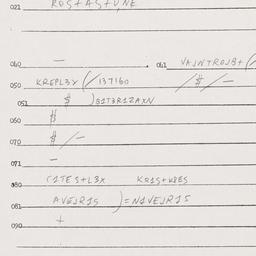 021 ROS+AS+U,NE
040 — . 041 VAJWTROJB+(
050 KREPL3Y (/137160 /$/—
051 $ )81T3R1ZAXN
060 $
070 $/—
071 —
080 C1TES+L3X KR1S+W8ES
081 AVEJR1S )=N1VEJR15
090 +